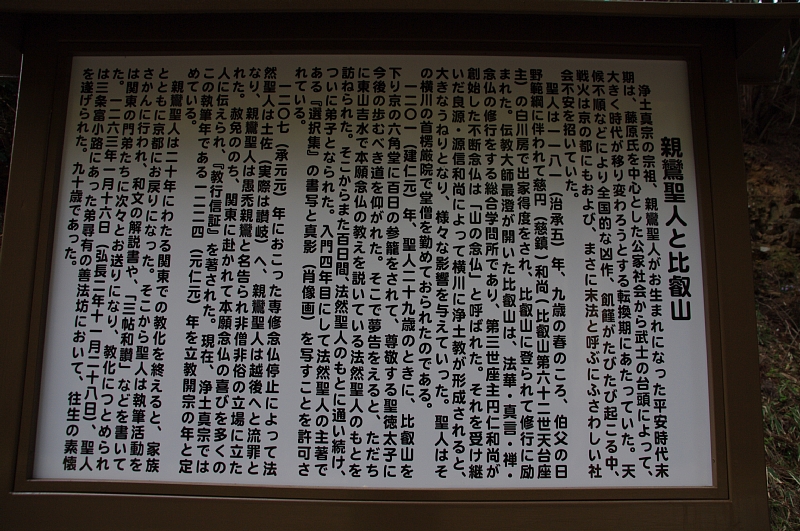 親鸞聖人と比叡山
浄土真宗の宗祖、親鸞聖人がお生まれになった平安時代末
期は、藤原氏を中心とした公家社会から武士の台頭によって、
大きく時代が移り変わろうとする転換期にあたっていた。天
候不順などにより全国的な凶作、飢饉がたびたび起こる中、
戦火は京の都にもおよび、まさに末法と呼ぶにふさわしい社
会不安を招いていた。
聖人は一一八一(治承五)年、九歳の春のころ、伯父の日
野範綱に伴われて慈円(慈鎮)和尚(比叡山第六十二世天台座
主)の白川房で出家得度をされ、比叡山に登られて修行に励
まれた。伝教大師最澄が開いた比叡山は、法華・真言・禅・
念仏の修行をする総合学問所であり、第三世座主円仁和尚が
創始した不断念仏は「山の念仏」と呼ばれた。それを受け継
いだ良源・源信和尚によって横川に浄土教が形成されると、
大きなうねりとなり、様々な影響を与えていった。聖人はそ
の横川の首楞厳院で堂僧を勤めておられたのである。
一二〇一(建仁元)年、聖人二十九歳のときに、比叡山を
下り京の六角堂に百日の参籠をされて、尊敬する聖徳太子に
今後の歩むべき道を仰がれた。そこで夢告をえると、ただち
に東山吉水で本願念仏の教えを説いている法然聖人のもとを
訪ねられた。そこからまた百日間、法然聖人のもとに通い続け、
ついに弟子となられた。入門四年目にして法然聖人の主著で
ある『選択集』の書写と真影(肖像画)を写すことを許可さ
れている。
一二〇七(承元元)年におこった専修念仏停止によって法
然聖人は土佐(実際は讃岐)へ、親鸞聖人は越後へと流罪と
なり、親鸞聖人は愚禿親鸞と名告られ非僧非俗の立場に立た
れた。赦免ののち、関東に赴かれて本願念仏の喜びを多くの
人に伝えられ、『教行信証』を著された。現在、浄土真宗では
この執筆年である一二二四(元仁元)年を立教開宗の年と定
めている。
親鸞聖人は二十年にわたる関東での教化を終えると、家族
とともに京都にお戻りになった。そこから聖人は執筆活動を
さかんに行われ、和文の解説書や、「三帖和讃」などを書いて
は関東の門弟たちに次々とお送りになり、教化につとめられ
た。一二六三年一月十六日(弘長二年十一月二十八日)、聖人
は三条富小路にあった弟尋有の善法坊において、往生の素懐
を遂げられた。九十歳であった。